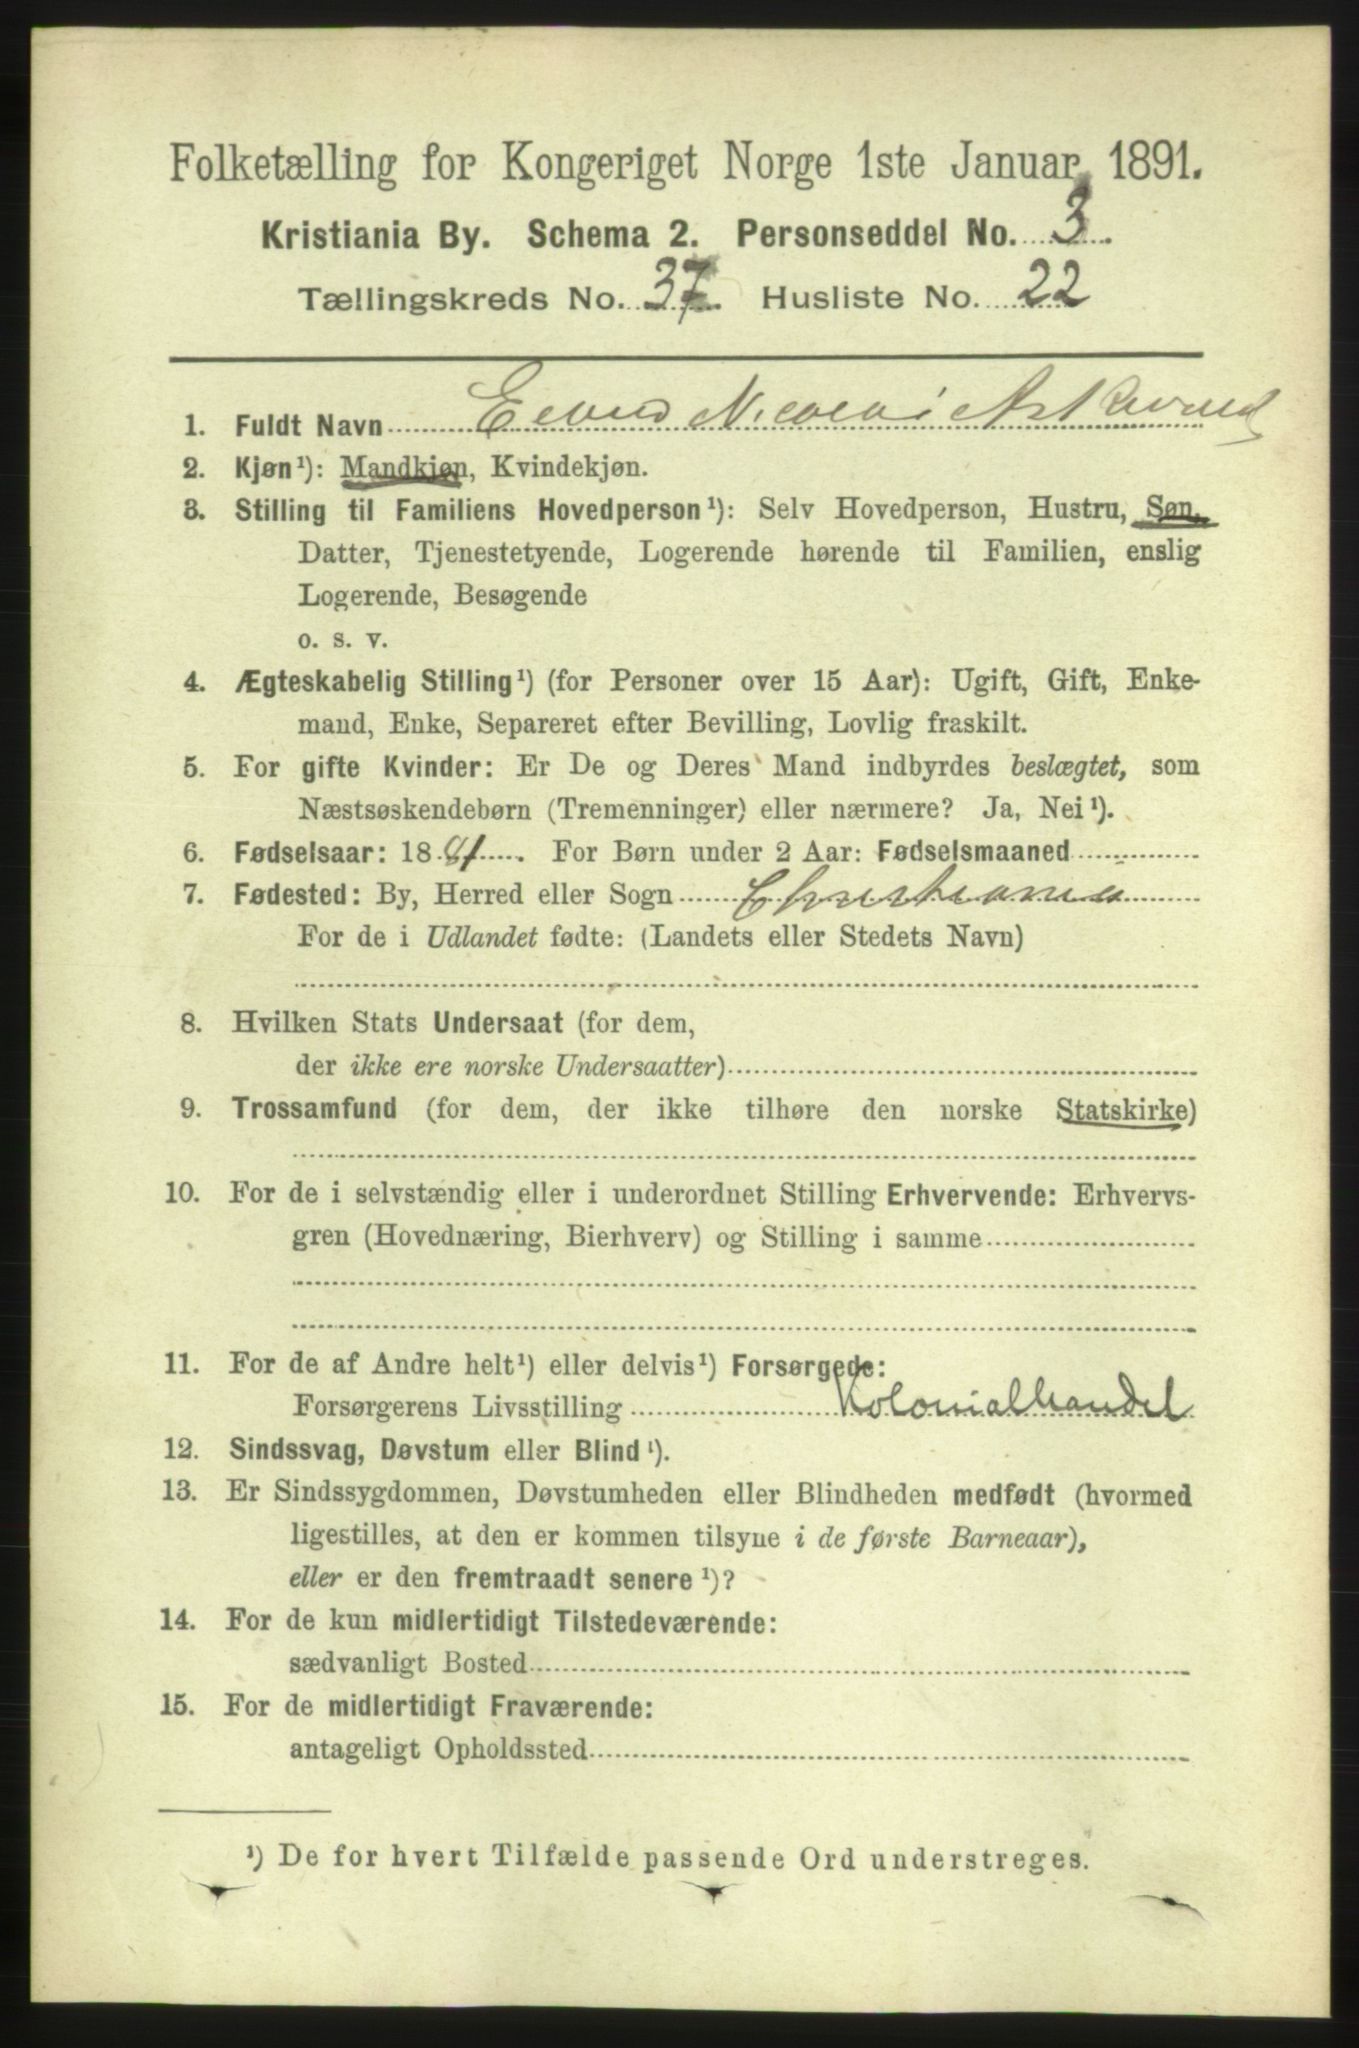 Folketælling for Kongeriget Norge 1ste Januar 1891.
Kristiania By. Schema 2. Personseddel No. 3.
Tællingskreds No. 37. Husliste No. 22
1. Fuldt Navn Nicolai
2. Kjøn¹): Mandkjøn, Kvindekjøn.
3. Stilling til Familiens Hovedperson¹): Selv Hovedperson, Hustru, Søn,
Datter, Tjenestetyende, Logerende hørende til Familien, enslig
Logerende, Besøgende
o. s. v.
4. Ægteskabelig Stilling¹) (for Personer over 15 Aar): Ugift, Gift, Enke-
mand, Enke, Separeret efter Bevilling, Lovlig fraskilt.
5. For gifte Kvinder: Er De og Deres Mand indbyrdes beslægtet, som
Næstsøskendebørn (Tremenninger) eller nærmere? Ja, Nei¹).
6. Fødselsaar: 1881. For Børn under 2 Aar: Fødselsmaaned
7. Fødested: By, Herred eller Sogn Christiania
For de i Udlandet fødte: (Landets eller Stedets Navn)
8. Hvilken Stats Undersaat (for dem,
der ikke ere norske Undersaatter)
9. Trossamfund (for dem, der ikke tilhøre den norske Statskirke)
10. For de i selvstændig eller i underordnet Stilling Erhvervende: Erhvervs-
gren (Hovednæring, Bierhverv) og Stilling i samme
11. For de af Andre helt¹) eller delvis¹) Forsørgede:
Forsørgerens Livsstilling Kolonialhandel
12. Sindssvag, Døvstum eller Blind¹).
13. Er Sindssygdommen, Døvstumheden eller Blindheden medfødt (hvormed
ligestilles, at den er kommen tilsyne i de første Barneaar),
eller er den fremtraadt senere¹)?
14. For de kun midlertidigt Tilstedeværende:
sædvanligt Bosted
15. For de midlertidigt Fraværende:
antageligt Opholdssted
¹) De for hvert Tilfælde passende Ord understreges.